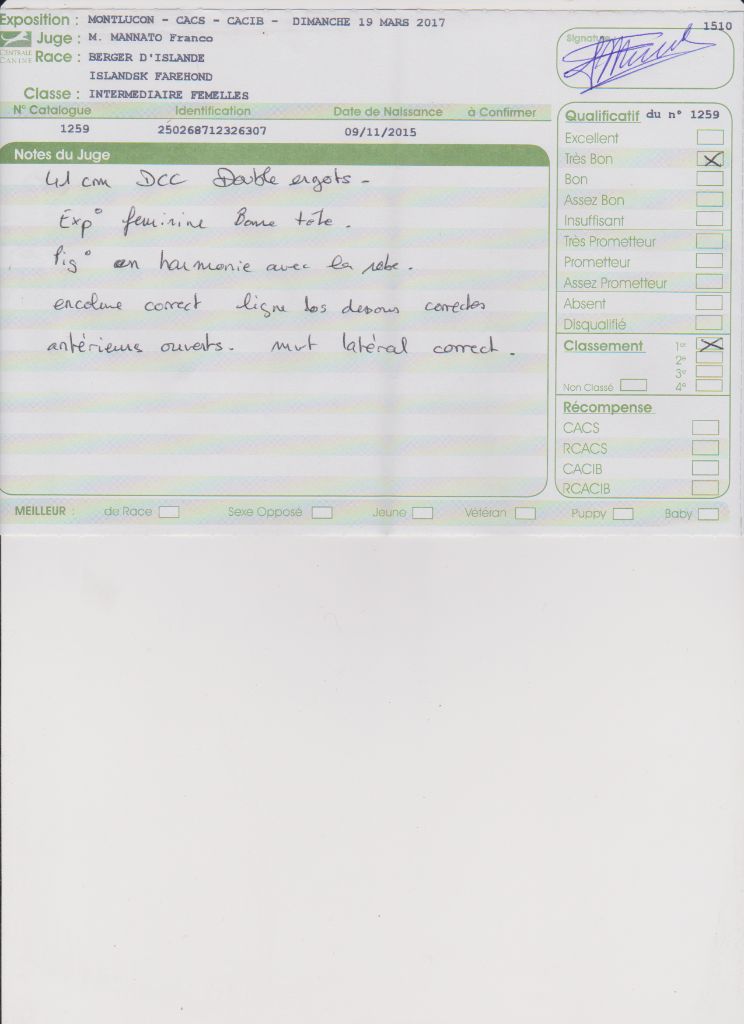 Exposition : MONTLUCON - CACS - CACIB - DIMANCHE 19 MARS 2017
1510
Juge : M. MANNATO Franco
CENTRALE CANINE
Race : BERGER D'ISLANDE
ISLANDSK FAREHOND
Classe : INTERMEDIAIRE FEMELLES
Signature
N° Catalogue Identification Date de Naissance à Confirmer
1259 250268712326307 09/11/2015
Notes du Juge
41 cm DCC Double ergots -
Exp° feminine Bonne tête.
Pig° en harmonie avec la robe.
encolure correct ligne dos dessous correctes
antérieurs ouverts. mvt latéral correct.
Qualificatif du n° 1259
Excellent
Très Bon X
Bon
Assez Bon
Insuffisant
Très Prometteur
Prometteur
Assez Prometteur
Absent
Disqualifié
Classement 1er X
2e
3e
Non Classé 4e
Récompense
CACS
RCACS
CACIB
RCACIB
MEILLEUR : de Race Sexe Opposé Jeune Vétéran Puppy Baby